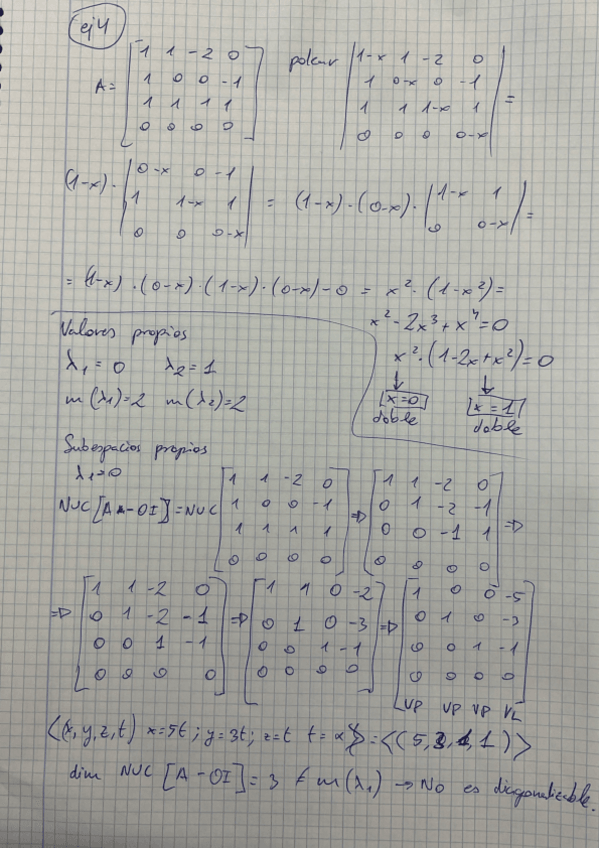 ej4
A = [1 1 -2 0; 1 0 0 -1; 1 1 1 1; 0 0 0 0] polcar |1-x 1 -2 0; 1 0-x 0 -1; 1 1 1-x 1; 0 0 0 0-x| =
(1-x) · |0-x 0 -1; 1 1-x 1; 0 0 0-x| = (1-x) · (0-x) · |1-x 1; 0 0-x| =
= (1-x) · (0-x) · (1-x) · (0-x) - 0 = x² · (1-x²) =
x² - 2x³ + x⁴ = 0
x² · (1-2x+x²) = 0
x=0 x=1
doble doble
Valores propios
λ₁ = 0 λ₂ = 1
m(λ₁)=2 m(λ₂)=2
Subespacios propios
λ₁=0
NUC [A-0I] = NUC [1 1 -2 0; 1 0 0 -1; 1 1 1 1; 0 0 0 0] ⇒ [1 1 -2 0; 0 1 -2 -1; 0 0 -1 1; 0 0 0 0] ⇒
⇒ [1 1 -2 0; 0 1 -2 -1; 0 0 1 -1; 0 0 0 0] ⇒ [1 1 0 -2; 0 1 0 -3; 0 0 1 -1; 0 0 0 0] ⇒ [1 0 0 -5; 0 1 0 -3; 0 0 1 -1; 0 0 0 0]
VP VP VP VL
<(x,y,z,t) x=5t; y=3t; z=t t=α> = <(5,3,1,1)>
dim NUC [A-0I] = 3 ≠ m(λ₁) → No es diagonalizable.